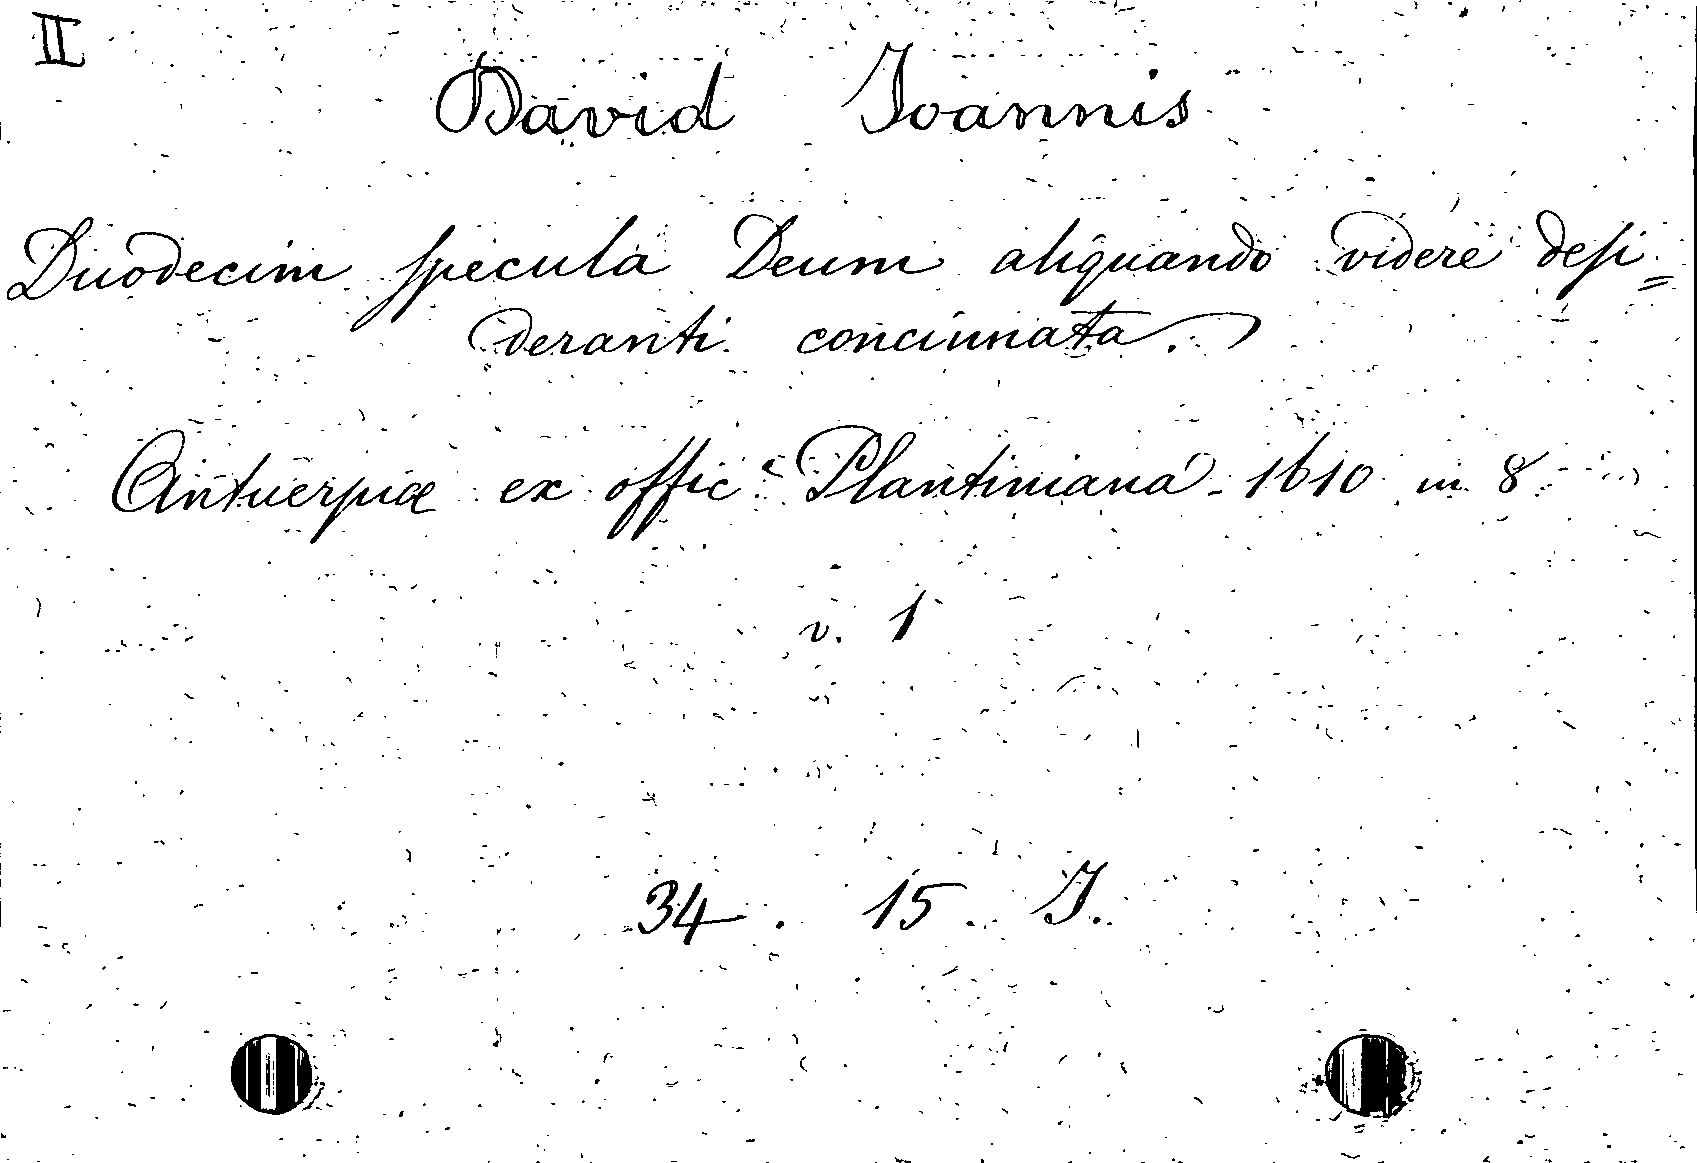 II
David Ioannis
Duodecim specula Deum aliquando videre desi=
deranti concinnata.
Antuerpiæ ex offic.ª Plantiniana - 1610 in 8
v. 1
34. 15. I.